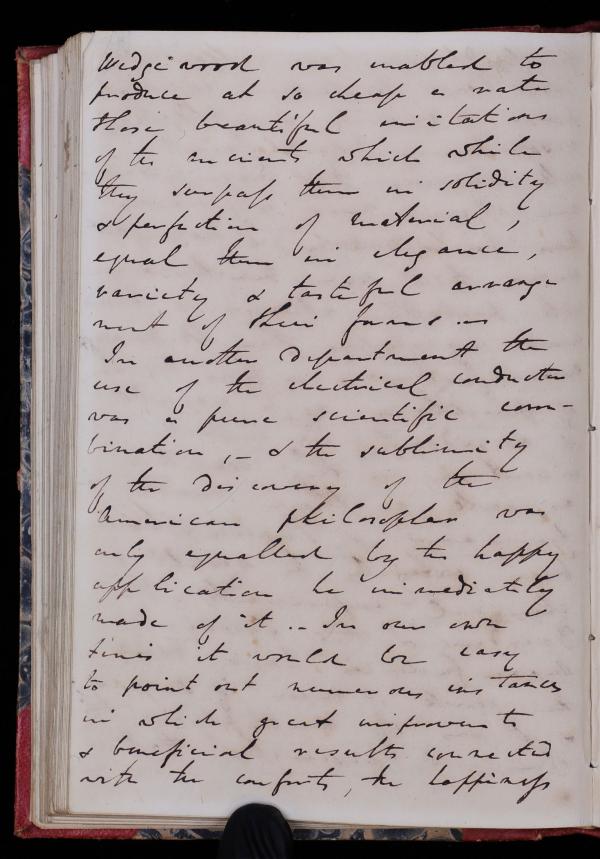 Wedgewood was enabled to
produce at so cheap a rate
those beautiful imitations
of the ancients which while
they surpass them in solidity
& perfection of material,
equal them in elegance,
variety & tasteful arrange
ment of their forms. –
In another department the
use of the electrical conductor
was a pure scientific com-
bination, – & the sublimity
of the discovery of the
American philosopher was
only equalled by the happy
application he immediately
made of it. – In our own
times it would be easy
to point out numerous instances
in which great improvements
& beneficial results connected
with the comforts, the happiness